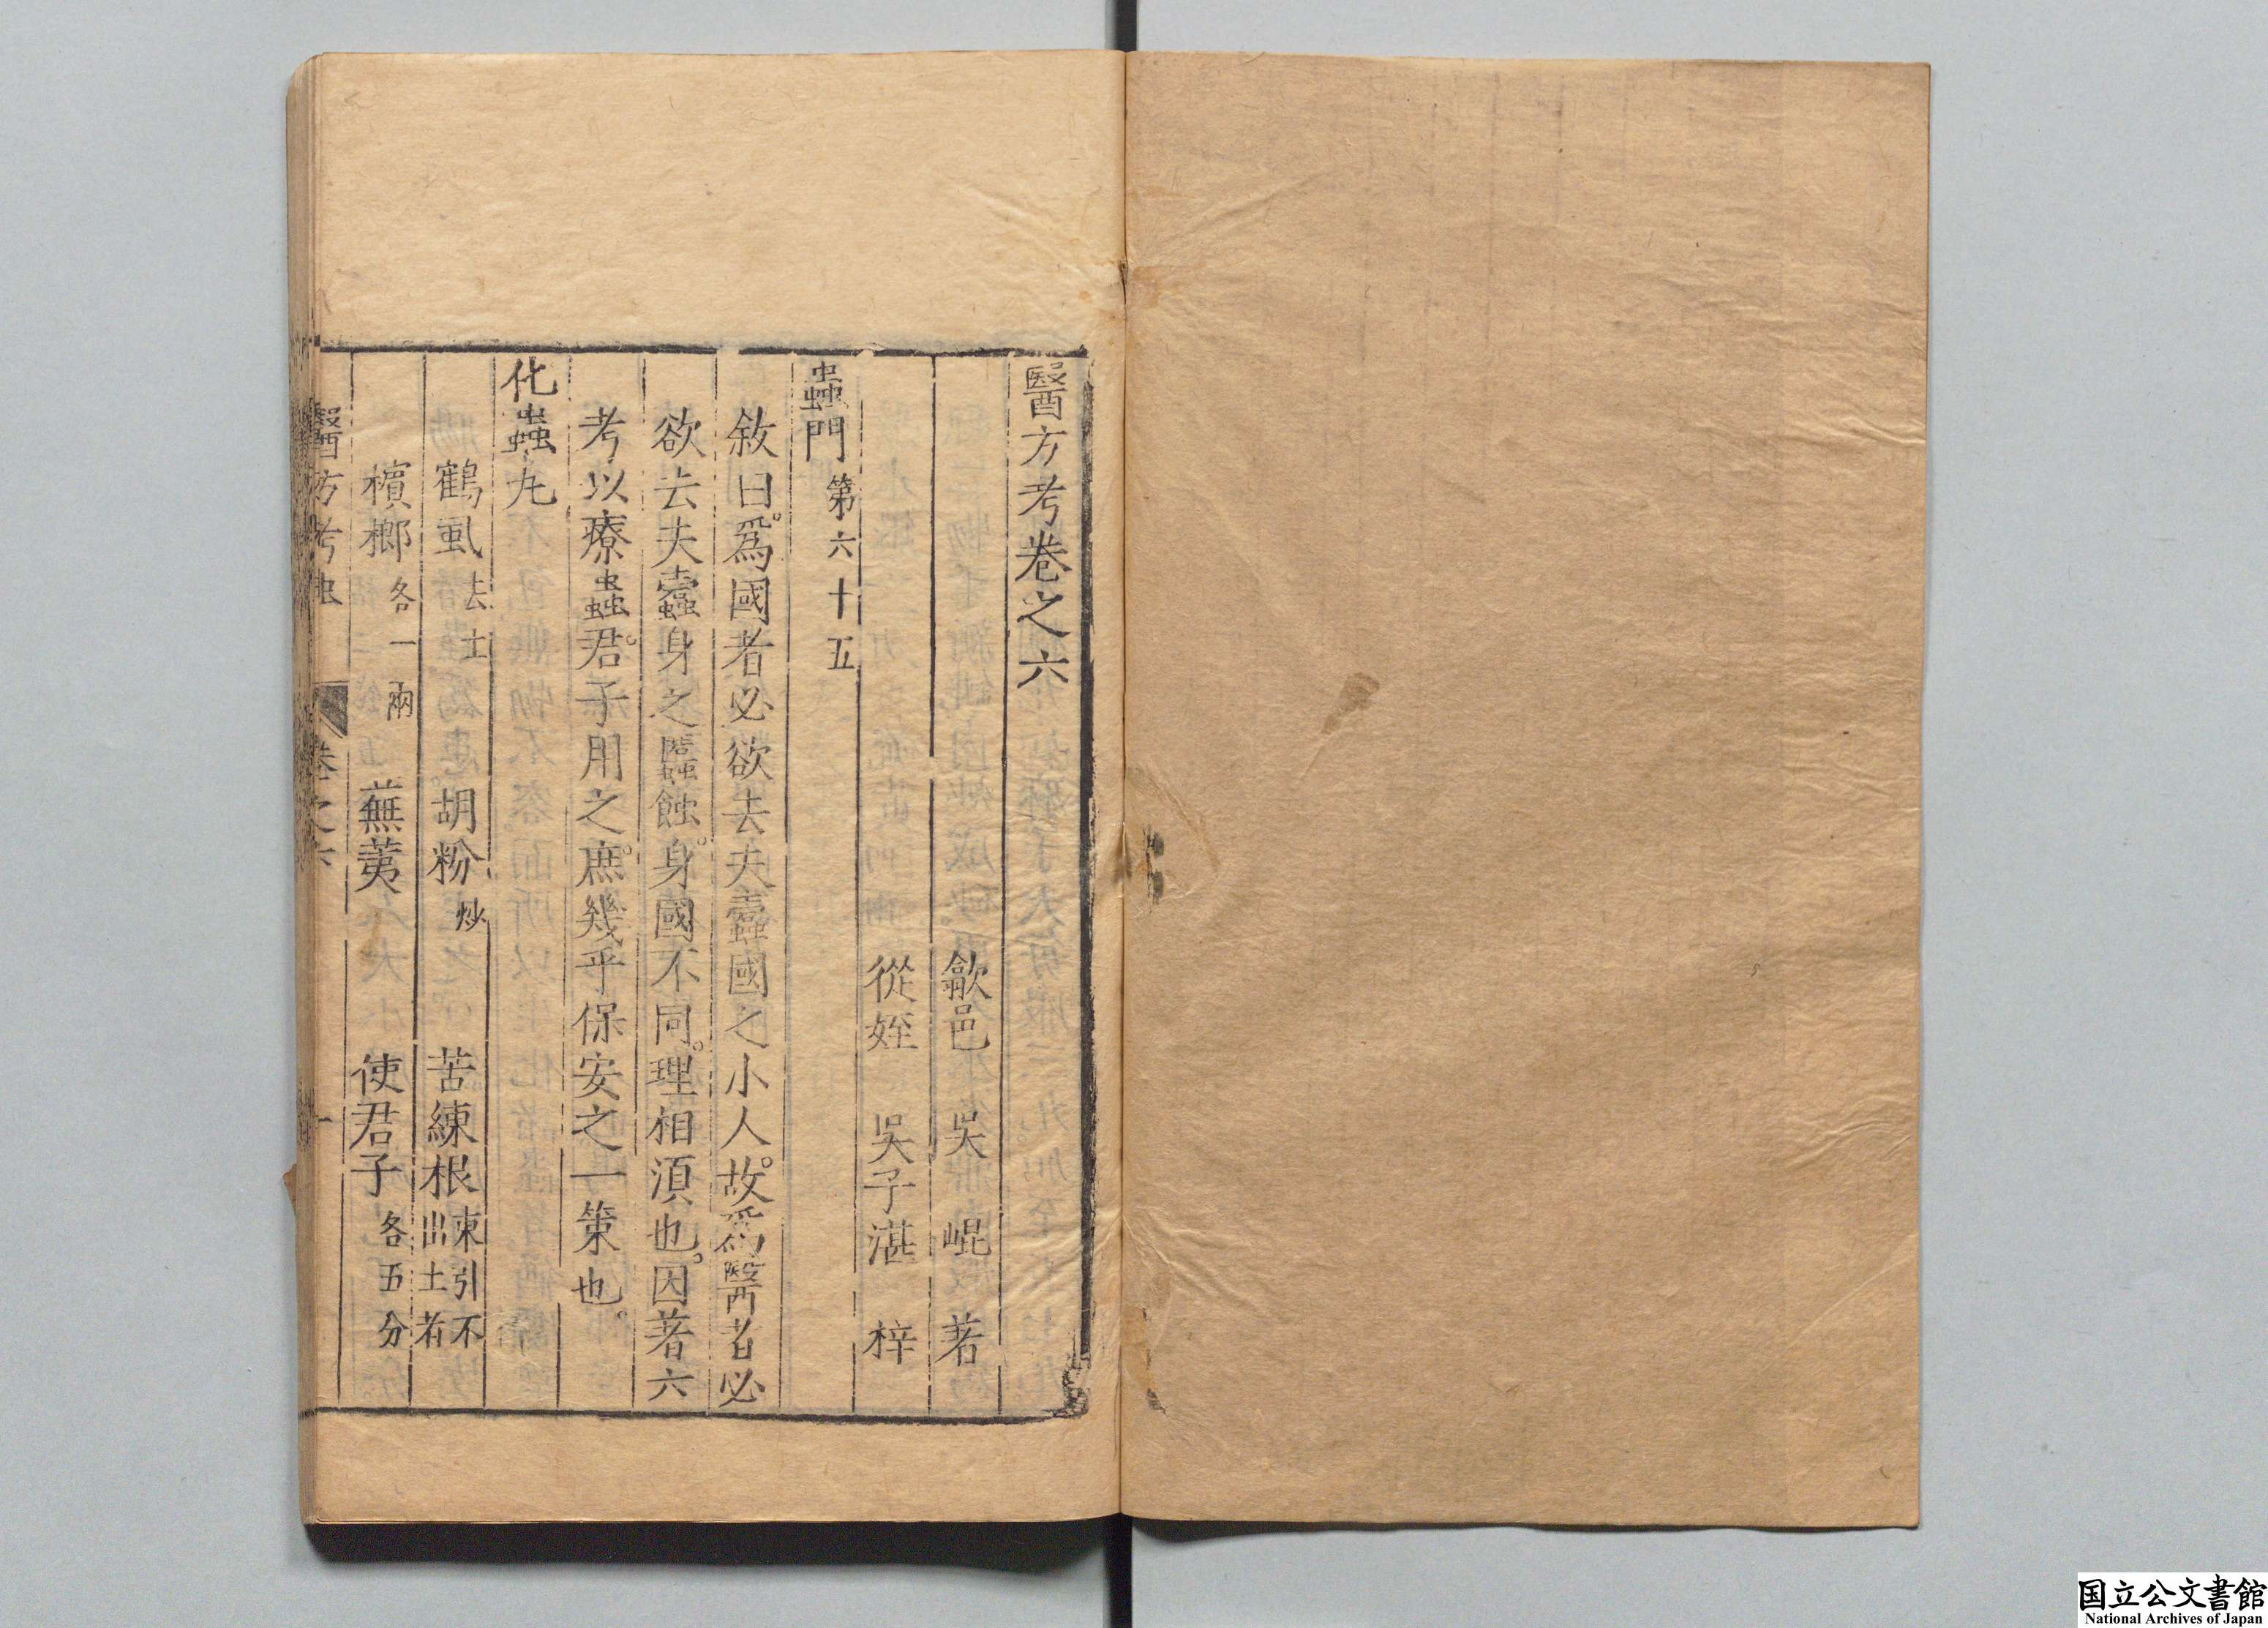 醫方考卷之六
歙邑 吳 崐 著
從姪 吳子湛 梓
蟲門 第六十五
敘曰。爲國者必欲去夫蠹國之小人。故爲醫者必
欲去夫蠹身之䘌蝕。身國不同。理相須也。因著六
考以療蟲。君子用之。庶幾乎保安之一策也。
化蟲丸
鶴虱 去土 胡粉 炒 苦練根 東引不出土者
檳榔 各一兩 蕪荑 使君子 各五分
醫方考 虫 卷之六 一
国立公文書館
National Archives of Japan